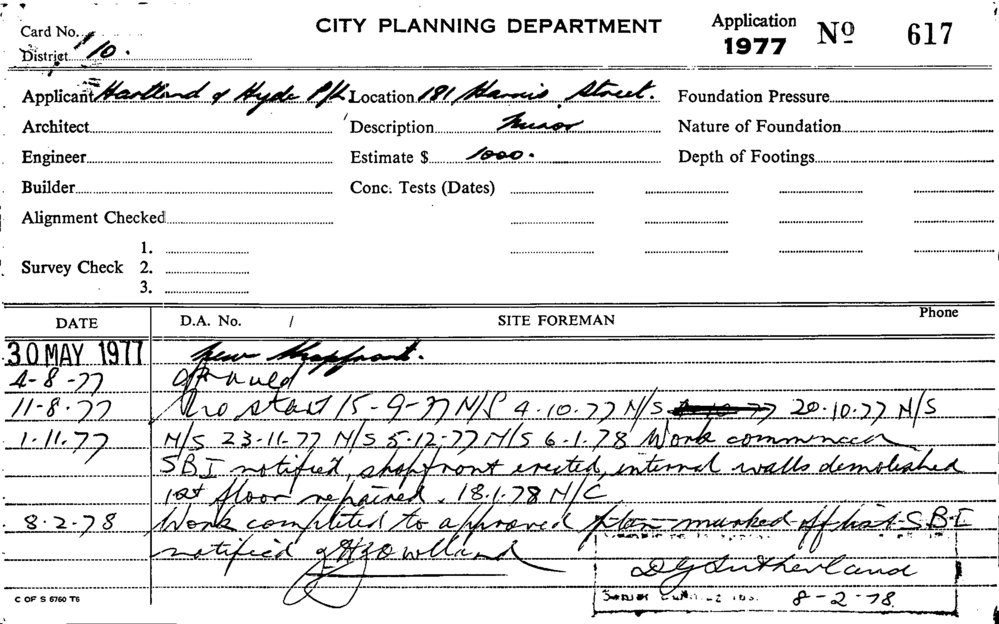 Card No.
CITY PLANNING DEPARTMENT
Application 1977 No 617
District 10.
Applicant Hartland & Hyde P/L Location 181 Harris Street. Foundation Pressure
Architect Description Minor Nature of Foundation
Engineer Estimate $ 1000. Depth of Footings
Builder Conc. Tests (Dates)
Alignment Checked
1.
Survey Check 2.
3.
DATE D.A. No. / SITE FOREMAN Phone
30 MAY 1977 New Shopfront.
4-8-77 approved
11-8-77 No start 15-9-77 N/S 4-10-77 N/S 20.10.77 N/S
1.11.77 N/S 23-11-77 N/S 5-12-77 N/S 6.1.78 Work commenced
SBI notified, shopfront erected, internal walls demolished
1st floor repaired. 18.1.78 N/C
8.2.78 Work completed to approved plan marked off list S.B.I
notified
D G Sutherland
8-2-78.
C OF S 6760 T6